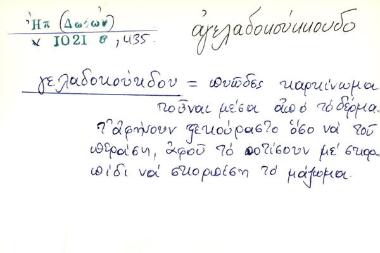 Ἠπ (Δωδών)
× 1021 σ, 435.
ἀγελαδοκούκουδο
γελαδοκούκδου = πυῶδες καρκίνωμα
ποὖναι μέσα ἀπό τό δέρμα.
Τ' ἀφήνουν ξεκούραστο ὅσο νά τοῦ
περάση, ἀφοῦ τό ποτίσουν μέ στυρα
πίδι νά σκορπίση τό μάζωμα.